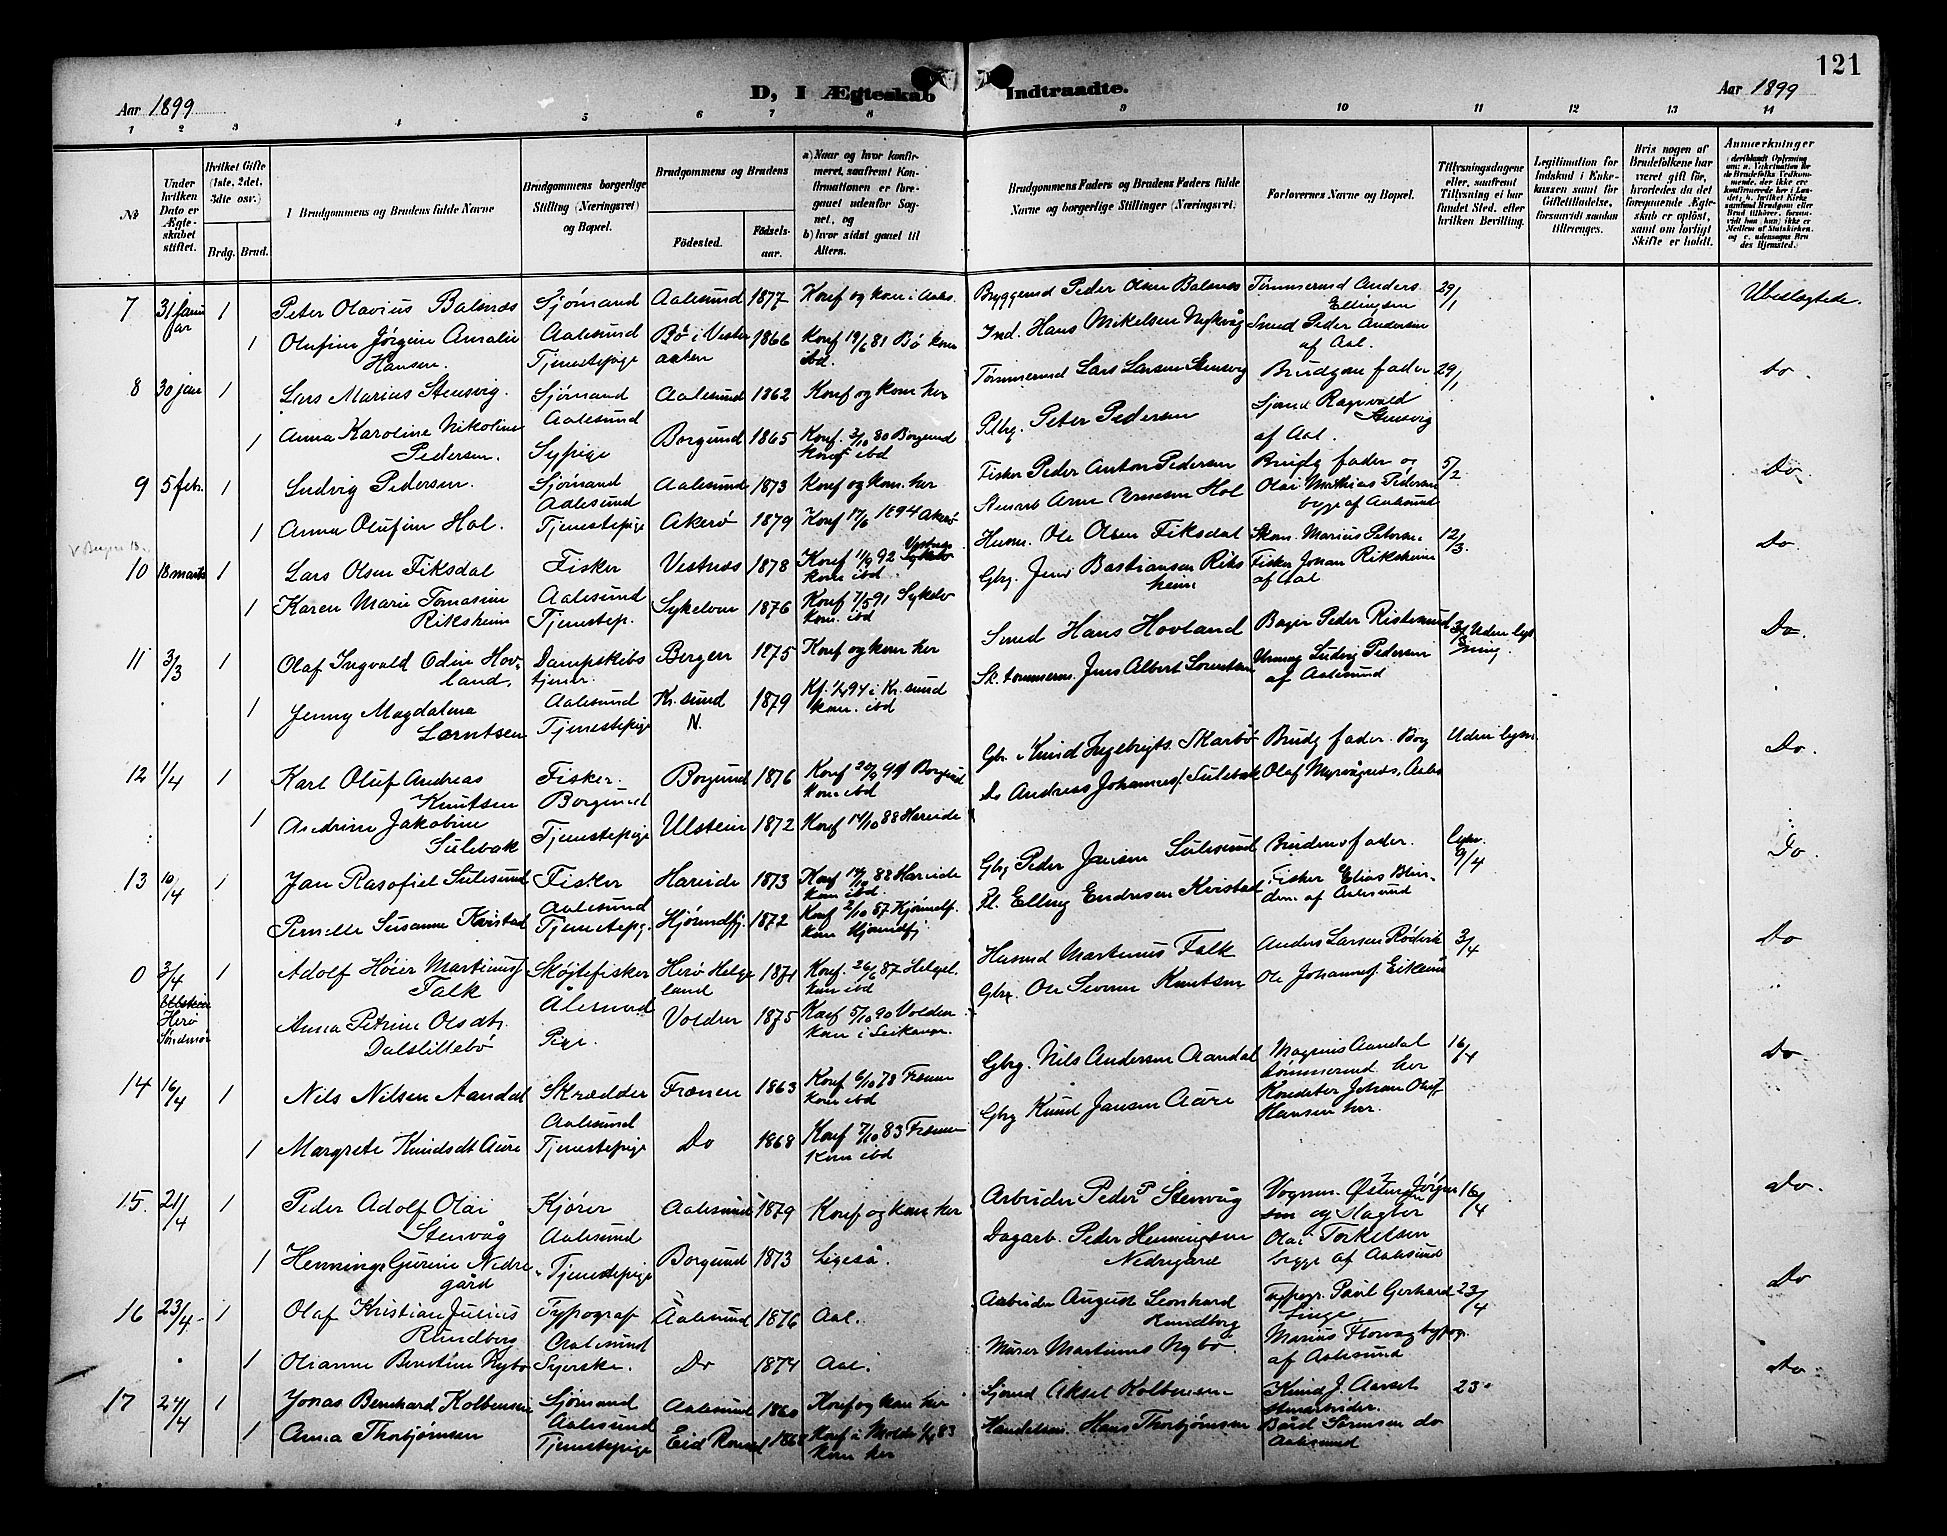 121
Aar 1899
D, I Ægteskab Indtraadte.
Aar 1899
1 2 3 4 5 6 7 8 9 10 11 12 13 14
No
Under hvilken Dato er Ægteskabet stiftet.
Hvilket Gifte (1ste, 2det, 3die osv.)
Brdg. Brud.
Brudgommens og Brudens fulde Navne
Brudgommens borgerlige Stilling (Næringsvei) og Bopæl.
Brudgommens og Brudens
Födested.
Födselsaar.
a) Naar og hvor konfirmeret, saafremt Konfirmationen er foregaaet udenfor Sognet, og
b) hvor sidst gaaet til Alters.
Brudgommens Faders og Brudens Faders fulde Navne og borgerlige Stillinger (Næringsvei)
Forlovernes Navne og Bopæl.
Tillysningsdagene eller, saafremt Tillysning ei har fundet Sted, efter hvilken Bevilling.
Legitimation for Indskud i Enkekassen samt for Giftetilladelse, forsaavidt saadan tiltrænges.
Hvis nogen af Brudefolkene har været gift før, hvorledes da det foregaaende Ægteskab er opløst, samt om lovligt Skifte er holdt.
Anmærkninger
7 31 januar 1 Peter Olavius Balsnes Sjömand Aalesund 1877 Konf og kom i Aals. Byggemd Peder Olsen Balsnes Tömmermd Anders Ellingsen 29/1 Ubeslægtede.
1 Olufine Jørgine Amalie Hansen. Aalesund Tjenestepige Bö i Vesteraalen 1866 Konf 19/6 81 Bö kom ibd. Ind. Hans Mikelsen Nykvåg Smed Peder Andersen af Aal.
8 30 jan 1 Lars Marius Stensvig. Sjömand Aalesund Aalesund 1862 Konf og kom her Tömmermd Lars Larsen Stensvig Brudgom fader 29/1 do.
1 Anna Karoline Nikoline Pedersen. Sypige Borgund 1865 Konf. 3/10 80 Borgund ibd Peter Pedersen Sjømd Ragnvald Stensvig af Aal.
9 5 febr. 1 Ludvig Pedersen. Sjömand Aalesund Aalesund 1873 Konf og kom. her Fisker Peder Anton Pedersen Brudg fader og 5/2 Do
1 Anna Olufine Hol. Tjenestepige Akerö 1879 Konf 17/6 1894 Akerö Arne Hol Olai Mathias Pedersen begge af Aalesund
10 18 marts 1 Lars Olsen Fiksdal Fisker Aalesund Vestnes 1878 Konf 11/9 92 kom ibd. Husm. Ole Olsen Fiksdal Skom. Marius Petersen 12/3. Do.
1 Karen Marie Tomasine Riksheim Tjenestep. Sykelven 1876 Konf 7/5 91 Sykelv kom. ibd Gbrg. Jens Bastiansen Riksheim Fisker Johan Riksheim af Aal
11 3/3 1 Olaf Ingvald Odin Hovland. Dampskibstjener. Aalesund Bergen 1875 Konf og kom her Smed Hans Hovland Bager Peder Ristesund 3/3 Uden lysning. Do.
1 Jenny Magdalena Lorntsen Tjenestepige Kr. sund N. 1879 Kf. 94 i Kr. sund kom. ibd Sk. tömmerm. Jens Albert Lorntsen Urmag Ludvig Pedersen af Aalesund
12 1/4 1 Karl Oluf Andreas Knutsen Fisker. Borgund Borgund 1876 Konf Borgund kom ibd Gbr. Knud Ingebrigts. Skarbö Brudg fader. Borg Uden lysn. Do.
1 Andrine Jakobine Sulebak Tjenestepige Ulstein 1872 Konf 14/10 88 Hareide Do Andreas Johannes. Sulebak Olaf Myrvågnes, Aales
13 10/4 1 Jan Rasofiel Sulesund Fisker Aalesund Hareide 1873 Konf 88 Hareide kom ibd. Gbrg Peder Jansen Sulesund Brudens fader. lysn. 9/4 Do.
Pernille Susanne Kvistad Tjenestepg. Hjörundfj. 1872 Konf 2/10 87 Hjörundf. kom Hjörundfj Elling Endresen Kvistad Fisker Elias af Aalesund
0 3/4 Herö Söndmör 1 Adolf Höier Martinus Falk Skøjtefisker Ålesund Herö Helgeland 1871 Konf. 26/6 87 Helgel. kom ibd Husmd Martinus Falk Anders Larsen Rödvik 3/4 Do
Anna Petrine Olsdtr. Dalslittebö Pige Volden 1875 Konf 5/10 90 Volden kom i Gbrg. Ole Severin Knutsen Ole Johannes. Eiksund
14 16/4 1 Nils Nilsen Aandal Skrædder Aalesund Frænen 1863 Konf 6/10 78 Frænen kom ibd Gbrg. Nils Andersen Aandal Magnus Aandal tömmermd her 16/4 Do
1 Margrete Knudsdt Aure Tjenestepige Do 1868 Konf 7/10 83 Frænen kom ibd Gbrg Knud Jansen Aure Konditor Johan Oluf Hansen her.
15. 21/4 1 Peder Adolf Olai Stenvåg Kjörer Aalesund Aalesund 1879 Konf og kom her Arbeider Peder P Stenvåg Vognm. Jörgensen og 16/4 Do.
1 Hennings Gurine Nedregård Tjenestepige Borgund 1873 Ligeså. Dagarb. Peder Henningsen Nedregård Olai Torkelsen begge af Aalesund
16 23/4 1 Olaf Kristian Julius Rundberg Typograf Aalesund Aalesund 1876 Aal. Arbeider August Leonhard Rundberg Typogr. Paul Gerhard Linge 23/4 Do
1 Olianne Berntine Nybö Syerske. Do 1874 Aal. Murer Martinus Nybö. Marius af Aalesund
17 24/4 1 Jonas Bernhard Kolbensen Sjömand Aalesund Aalesund 1860 Konf og kom her Sjömd Aksel Kolbensen Knud J. Aarset 23 Do.
1 Anna Thorbjörnsen Tjenestepige Eid Romsd 1868 Konf i Molde 83 kom her Handelsm. Hans Thorbjörnsen Bård Sörensen do Aalesund